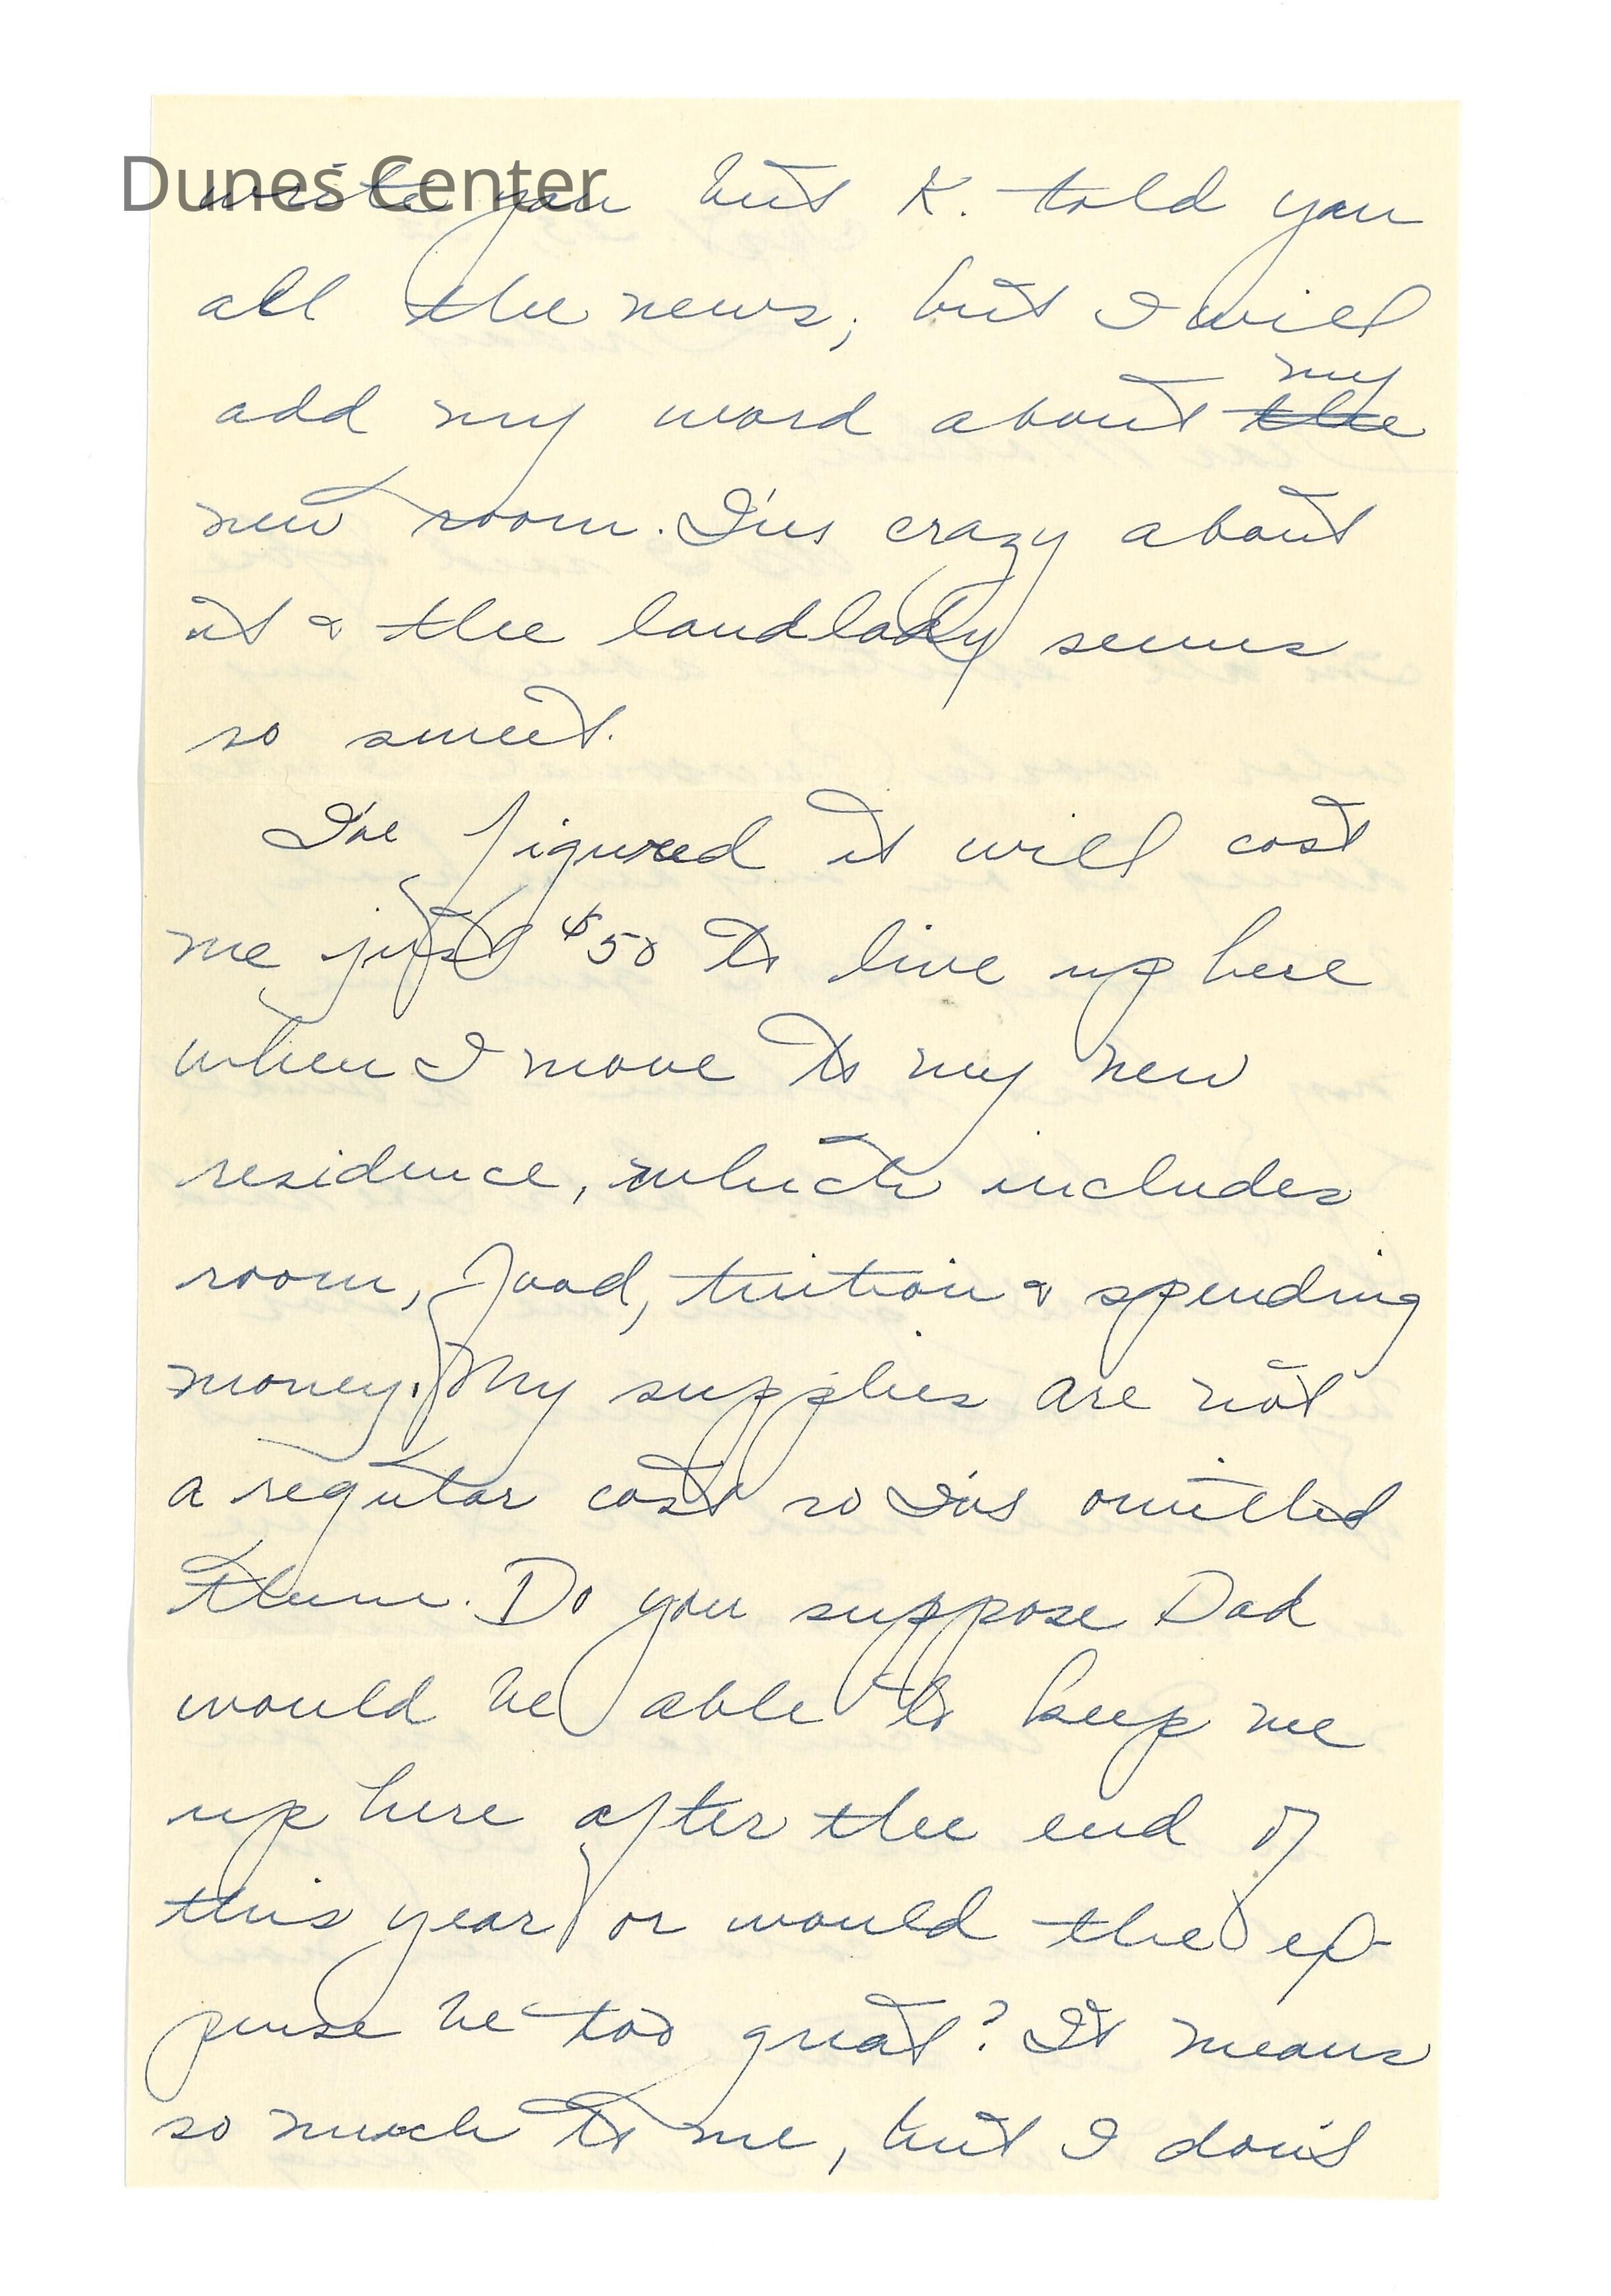 Dunes Center
write you but K. told you
all the news; but I will
my
add my word about the
new room. I'm crazy about
it & the landlady seems
so sweet.
I've figured it will cost
me just $50 to live up here
when I move to my new
residence, which includes
room, food, tuition & spending
money. My supplies are not
a regular cost so I've omitted
them. Do you suppose Dad
would be able to keep me
up here after the end of
this year or would the ex-
pense be too great? It means
so much to me, but I don't